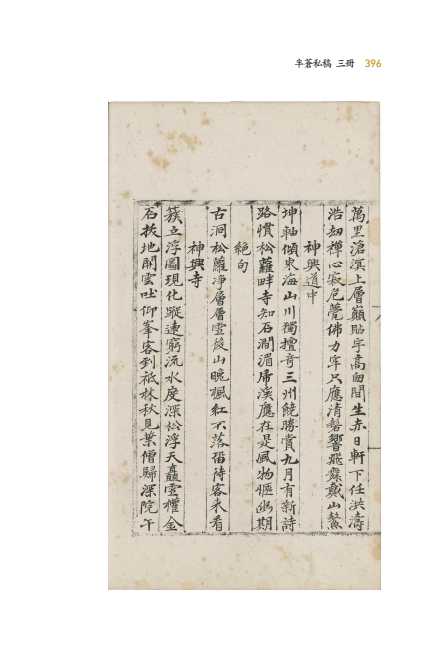 半蒼私稿 三冊 396
萬里滄溟上層巔貼宇高囱間生赤日軒下任洪濤
浩劫禪心寂危甍佛力牢只應清磬響飛霖戴山鰲
神興道中
坤軸傾東海山川獨擅奇三州饒勝賞九月有新詩
路慣松蘿畔寺知石澗湄虎溪應在是風物愜幽期
絕句
古洞松蘿淨層層雪後山晚楓紅不落留待客來看
神興寺
簇立浮圖現化蹤遠窮流水度深松浮天矗雪權金
石拔地開雲吐仰峯客到祗林秋見葉僧歸深院午